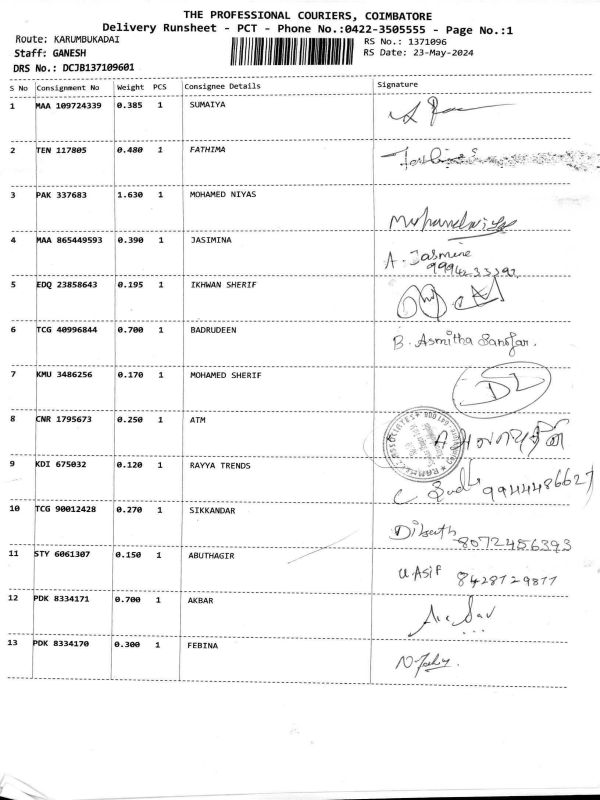 THE PROFESSIONAL COURIERS, COIMBATORE
Delivery Runsheet - PCT - Phone No.:0422-3505555 - Page No.:1
Route: KARUMBUKADAI RS No.: 1371096
Staff: GANESH RS Date: 23-May-2024
DRS No.: DCJB137109601
S No Consignment No Weight PCS Consignee Details Signature
1 MAA 109724339 0.385 1 SUMAIYA
2 TEN 117805 0.480 1 FATHIMA
3 PAK 337683 1.630 1 MOHAMED NIYAS
4 MAA 865449593 0.390 1 JASIMINA A. Jasmine
5 EDQ 23858643 0.195 1 IKHWAN SHERIF
6 TCG 40996844 0.700 1 BADRUDEEN B. Asmitha Banofar.
7 KMU 3486256 0.170 1 MOHAMED SHERIF DL
8 CNR 1795673 0.250 1 ATM
9 KDI 675032 0.120 1 RAYYA TRENDS 9944486627
10 TCG 90012428 0.270 1 SIKKANDAR 8072456393
11 STY 6061307 0.150 1 ABUTHAGIR U Asif 8428129877
12 PDK 8334171 0.700 1 AKBAR
13 PDK 8334170 0.300 1 FEBINA